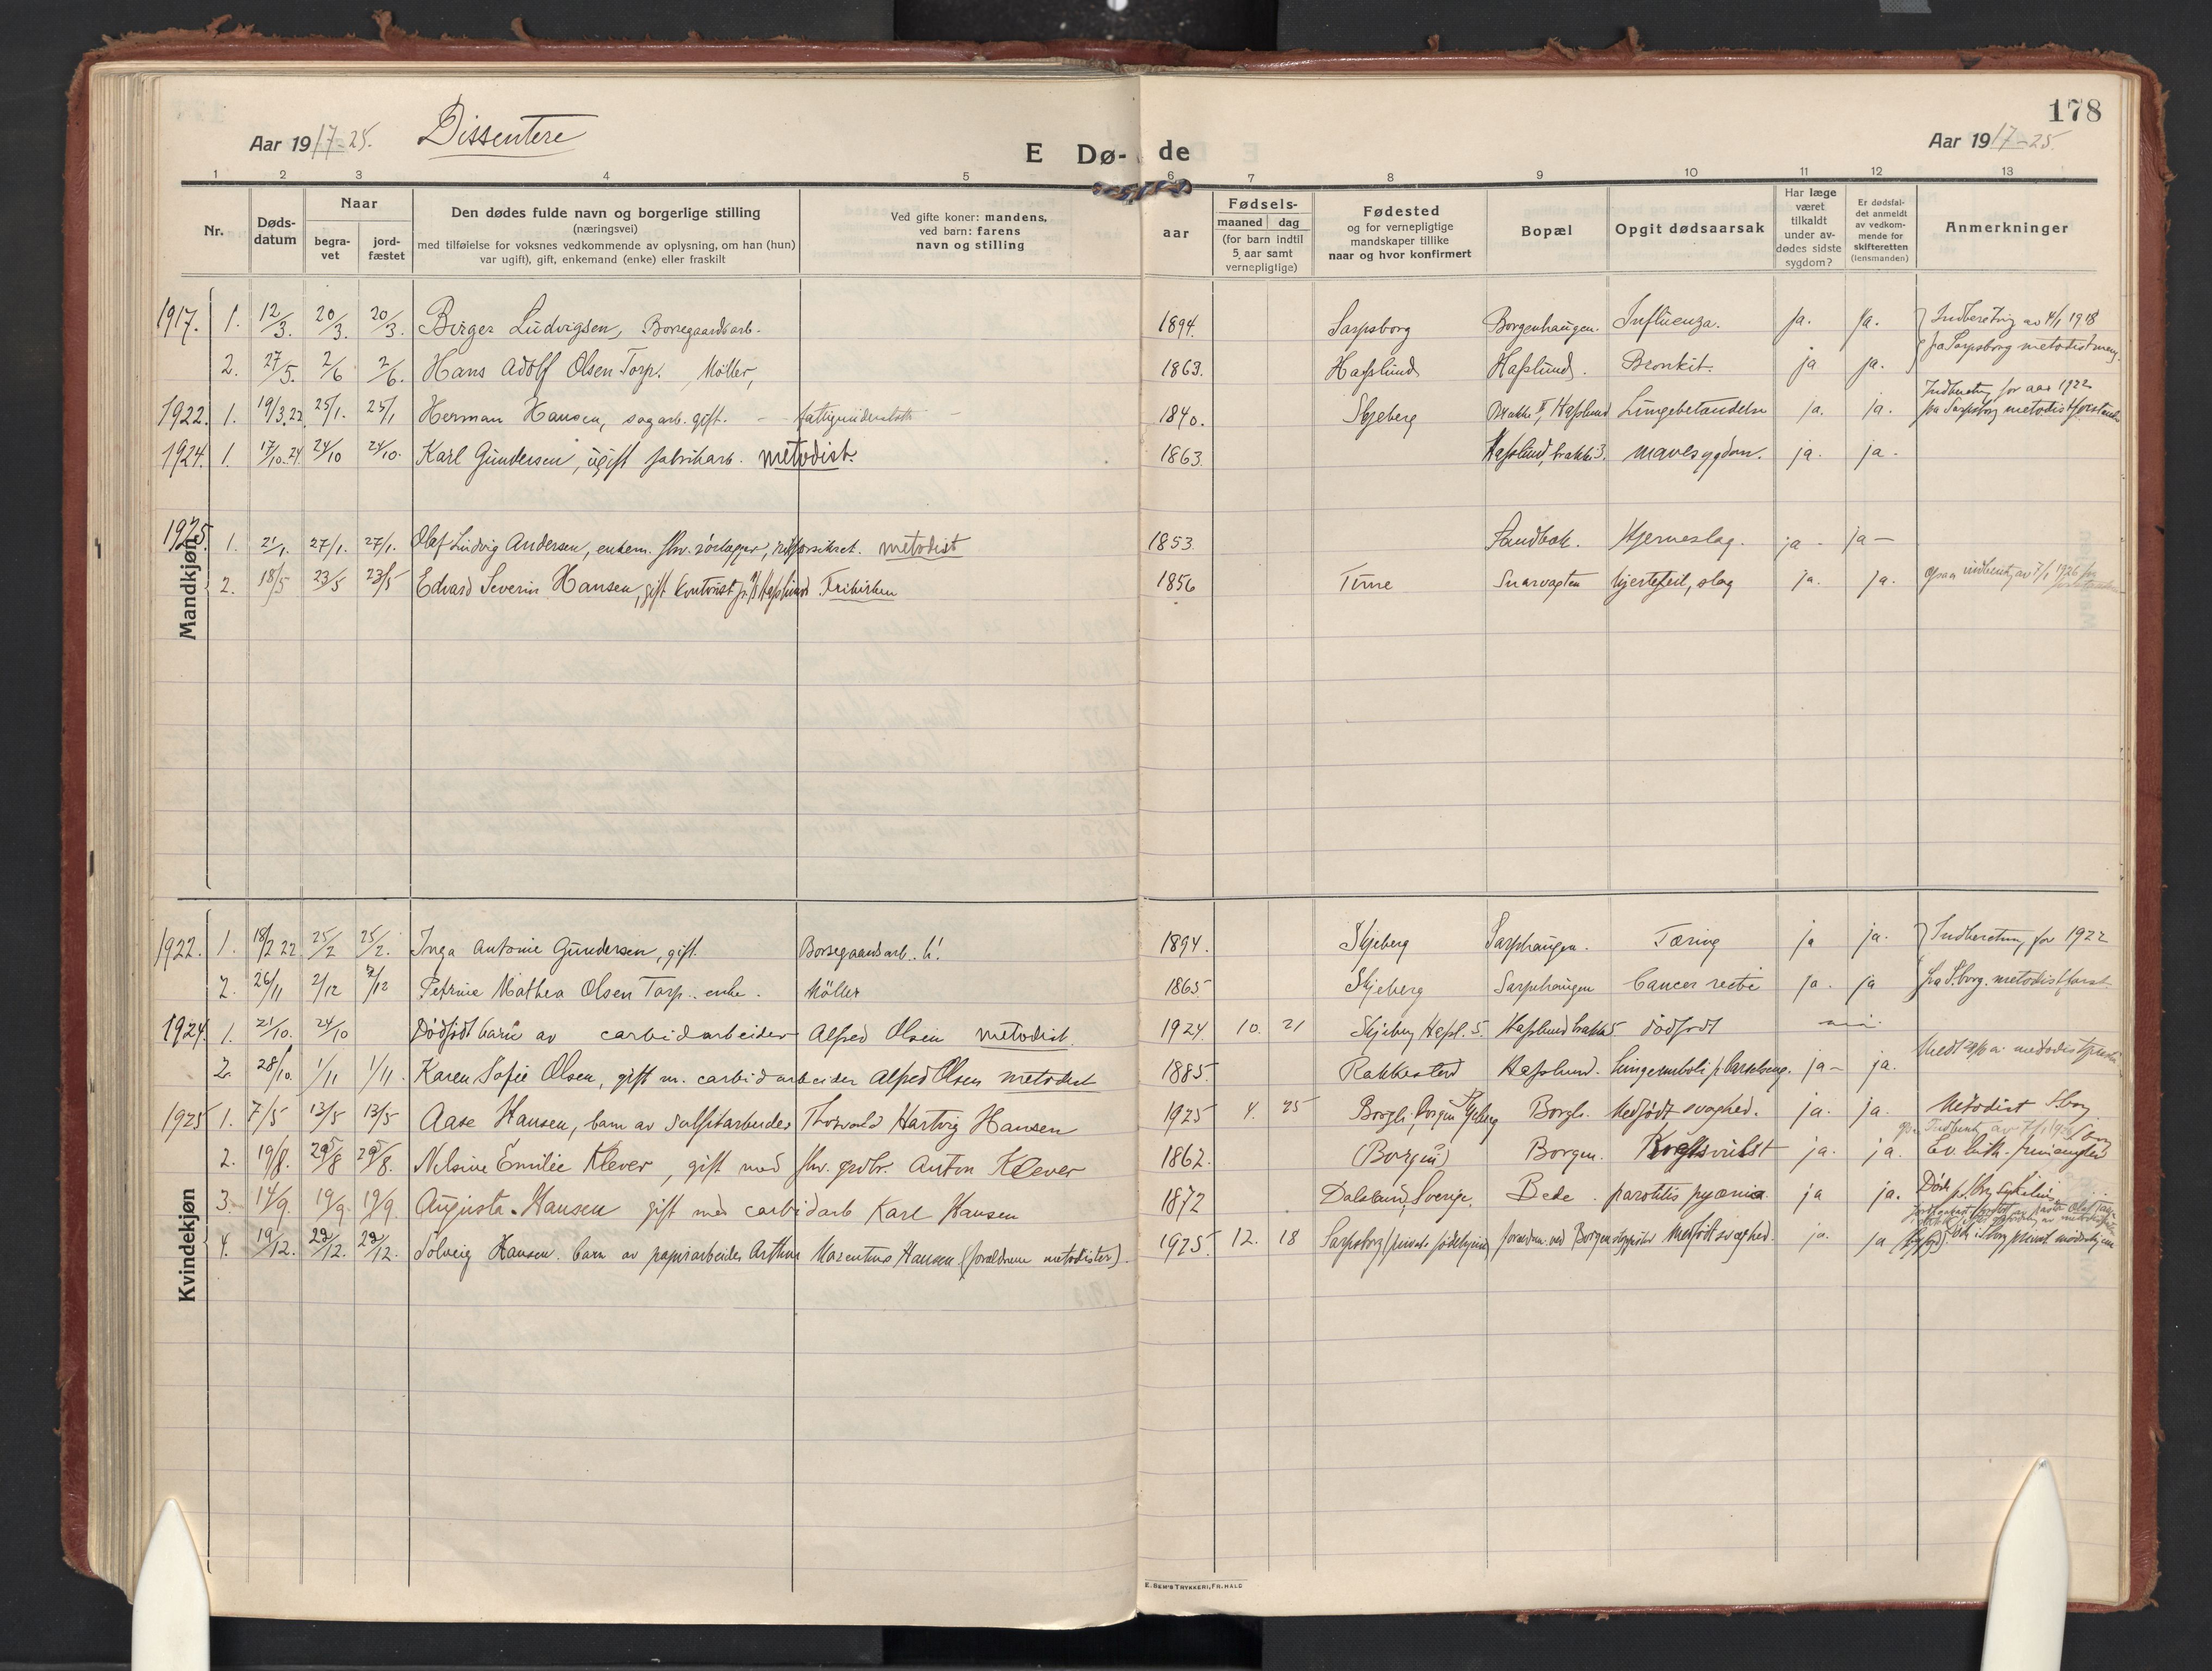 178
Aar 1917-25. Dissentere
E Dø- de
Aar 1917-25.
1 2 3 4 5 6 7 8 9 10 11 12 13
Nr.
Døds-
datum
Naar
begra-
vet
jord-
fæstet
Den dødes fulde navn og borgerlige stilling
(næringsvei)
med tilføielse for voksnes vedkommende av oplysning, om han (hun)
var ugift), gift, enkemand (enke) eller fraskilt
Ved gifte koner: mandens,
ved barn: farens
navn og stilling
Fødsels-
aar
maaned dag
(for barn indtil
5 aar samt
vernepligtige)
Fødested
og for vernepligtige
mandskaper tillike
naar og hvor konfirmert
Bopæl
Opgit dødsaarsak
Har læge
været
tilkaldt
under av-
dødes sidste
sygdom?
Er dødsfal-
det anmeldt
av vedkom-
mende for
skifteretten
(lensmanden)
Anmerkninger
Mandkjøn
1917. 1. 12/3. 20/3. 20/3. Birger Ludvigsen, Borregaardsarb. 1894. Sarpsborg Borgenhaugen. Influenza. Ja. Ja. Indberetning av 4/1 1918
2. 27/5. 2/6 2/6. Hans Adolf Olsen Torp. Møller, 1863. Hafslund Hafslund. Bronkit. ja ja. fra Sarpsborg metodistmen.
1922. 1. 19/3.22 25/1. 25/1 Herman Hansen, sagarb. gift. 1840. Skjeberg Brakke II, Hafslund Lungebetændelse ja. ja. for aar 1922
fra Sarpsborg metodistforstander
1924. 1. 17/10.24 24/10 24/10. Karl Gundersen, ugift fabrikarb. metodist. 1863. Hafslund, brakke 3. mavesygdom. ja. ja.
1925. 1. 21/1. 27/1. 27/1. Olaf Ludvig Andersen, enkem. fhv. metodist 1853. Sandbak. Hjerneslag. ja - ja -
2. 18/5 23/5 23/5 Edvard Severin Hansen, gift Kontorist Hafslund. Frikirken 1856 Tune Snarvagten hjertefeil, slag ja. ja. 7/1 1926
Kvindekjøn
1922. 1. 18/2 22 25/2 25/2. Inga Antonie Gundersen, gift. Borregaardsarb. 1894. Skjeberg Sarphaugen. Tæring ja ja. Indberetning for 1922
2. 26/11 2/12 2/12 Petrine Mathea Olsen Torp. enke. Møller 1865 Skjeberg Sarphaugen Cancer recti ja. ja fra S.borg. metodistforst.
1924. 1. 21/10. 24/10 Dødfødt barn av carbidarbeider Alfred Olsen metodist. 1924. 10. 21 Skjeberg Hafsl. 5. Hafslund brakke 5 dødfødt
2. 28/10. 1/11 1/11. Karen Sofie Olsen, gift m. carbidarbeider Alfred Olsen metodist 1885. Rakkestad Hafslund. Lungeemboli p. barselseng. ja - ja.
1925 1. 7/5 13/5 13/5 Aase Hansen, barn av sulfitarbeider Thorvald Hartvig Hansen 1925 4. 25 Borgli, Borgen Skjeberg Borgli. Medfødt svaghed. ja. ja. Metodist S.borg
2. 19/8. 25/8 25/8. Nelsine Emilie Klever, gift med fhv. grdbr. Anton Klever 1862. (Borgen) Borgen. ja. ja. Ev. luth. frimenighed
3. 14/9. 19/9. 19/9. Augusta Hansen gift med carbidarb Karl Hansen 1872 Dalsland, Sverige. Bede. parotitis pyæmia. ja ja. Døde
4. 19/12. 22/12. 22/12. Solveig Hansen. barn av papirarbeider Arthur Marentius Hansen (forældrene metodister). 1925. 12. 18 Sarpsborg private fødehjem Medfødt svaghed. ja. ja
E. SEM'S TRYKKERI, FR.HALD